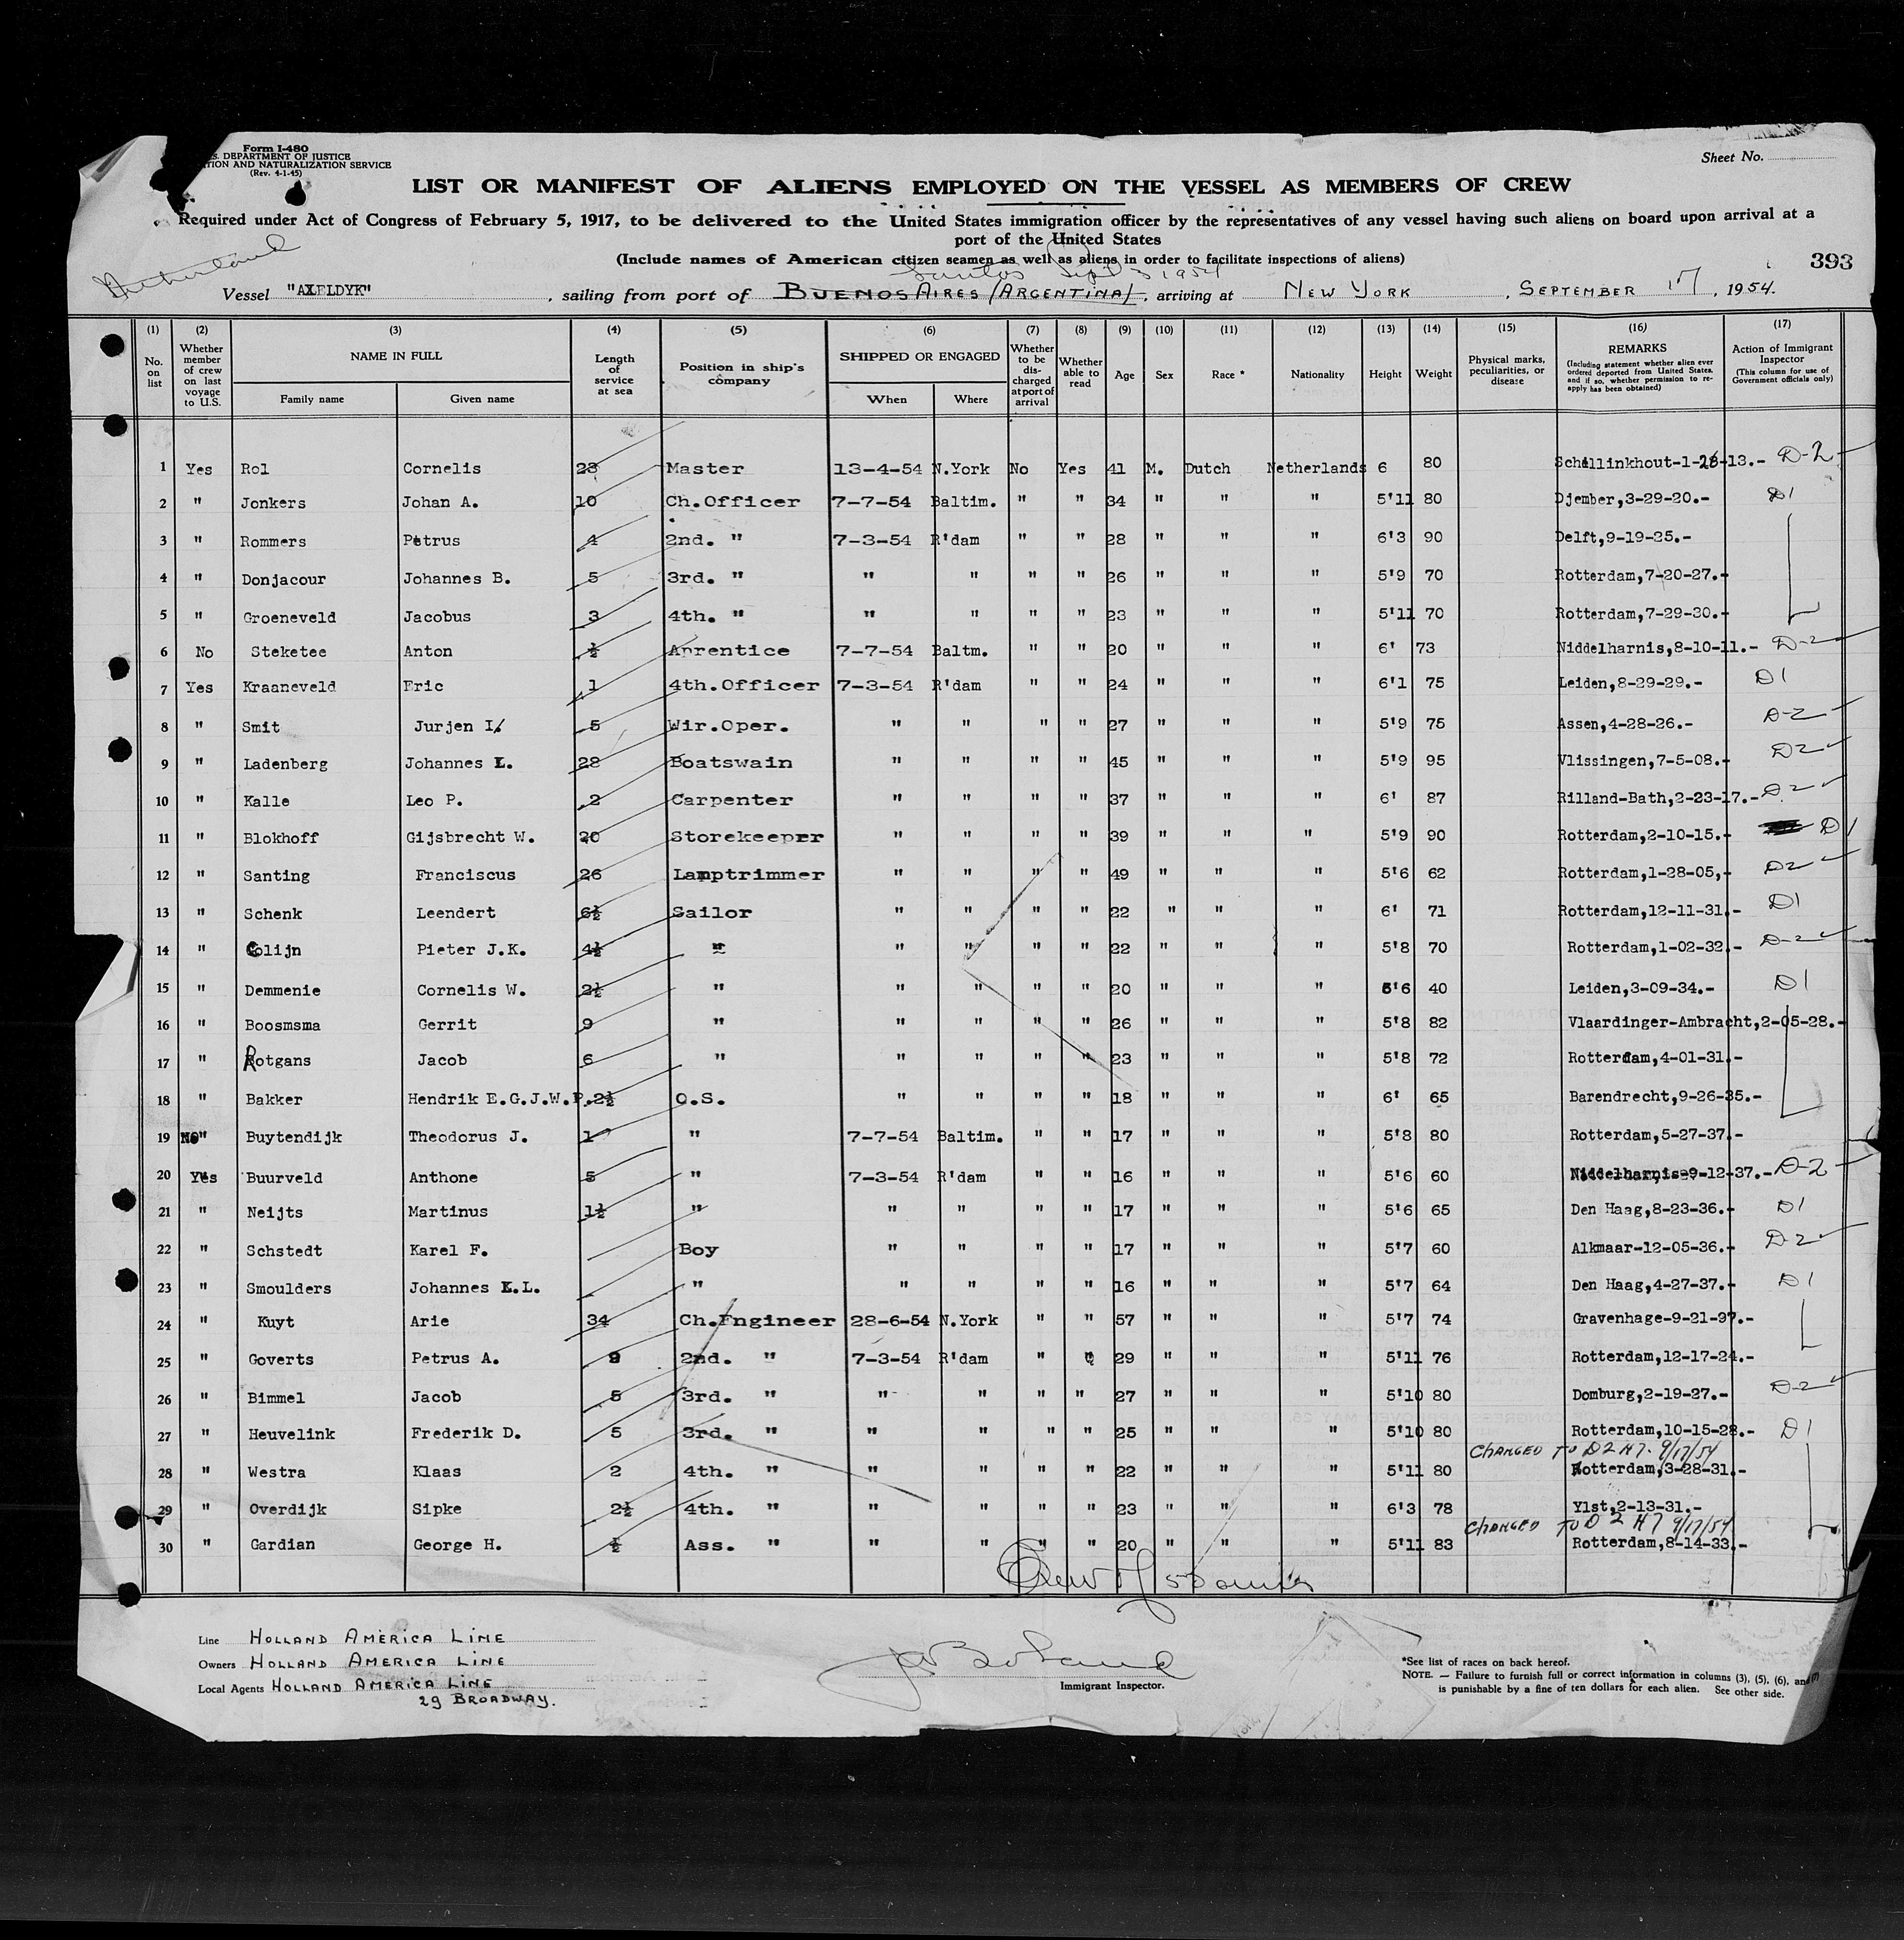 Form I-480
S. DEPARTMENT OF JUSTICE
TION AND NATURALIZATION SERVICE
(Rev. 4-1-45)
Sheet No.
LIST OR MANIFEST OF ALIENS EMPLOYED ON THE VESSEL AS MEMBERS OF CREW
Required under Act of Congress of February 5, 1917, to be delivered to the United States immigration officer by the representatives of any vessel having such aliens on board upon arrival at a
port of the United States
(Include names of American citizen seamen as well as aliens in order to facilitate inspections of aliens)
393
Netherland
Santos Sept 3 1954
Vessel "AXELDYK", sailing from port of BUENOS AIRES (ARGENTINA), arriving at NEW YORK, SEPTEMBER 17, 1954.
(1) (2) (3) (4) (5) (6) (7) (8) (9) (10) (11) (12) (13) (14) (15) (16) (17)
No. on list
Whether member of crew on last voyage to U.S.
NAME IN FULL
Family name
Given name
Length of service at sea
Position in ship's company
SHIPPED OR ENGAGED
When
Where
Whether to be discharged at port of arrival
Whether able to read
Age
Sex
Race *
Nationality
Height
Weight
Physical marks, peculiarities, or disease
REMARKS
(Including statement whether alien ever ordered deported from United States, and if so, whether permission to reapply has been obtained)
Action of Immigrant Inspector
(This column for use of Government officials only)
1 Yes Rol Cornelis 23 Master 13-4-54 N.York No Yes 41 M. Dutch Netherlands 6 80 Schellinkhout-1-28-13.- D-2
2 " Jonkers Johan A. 10 Ch.Officer 7-7-54 Baltim. " " 34 " " " 5'11 80 Djember,3-29-20.- D1
3 " Rommers Petrus 4 2nd. " 7-3-54 R'dam " " 28 " " " 6'3 90 Delft,9-19-25.-
4 " Donjacour Johannes B. 5 3rd. " " " " " 26 " " " 5'9 70 Rotterdam,7-20-27.-
5 " Groeneveld Jacobus 3 4th. " " " " " 23 " " " 5'11 70 Rotterdam,7-29-30.-
6 No Steketee Anton ½ Aprentice 7-7-54 Baltm. " " 20 " " " 6' 73 Niddelharnis,8-10-11.- D-2
7 Yes Kraaneveld Eric 1 4th.Officer 7-3-54 R'dam " " 24 " " " 6'1 75 Leiden,8-29-29.- D1
8 " Smit Jurjen I. 5 Wir.Oper. " " " " 27 " " " 5'9 75 Assen,4-28-26.- D-2
9 " Ladenberg Johannes L. 28 Boatswain " " " " 45 " " " 5'9 95 Vlissingen,7-5-08.- D2
10 " Kalle Leo P. 2 Carpenter " " " " 37 " " " 6' 87 Rilland-Bath,2-23-17.- D2
11 " Blokhoff Gijsbrecht W. 20 Storekeeprr " " " " 39 " " " 5'9 90 Rotterdam,2-10-15.- D1
12 " Santing Franciscus 26 Lamptrimmer " " " " 49 " " " 5'6 62 Rotterdam,1-28-05,- D2
13 " Schenk Leendert 6½ Sailor " " " " 22 " " " 6' 71 Rotterdam,12-11-31.- D1
14 " Colijn Pieter J.K. 4½ " " " " " 22 " " " 5'8 70 Rotterdam,1-02-32.- D-2
15 " Demmenie Cornelis W. 2½ " " " " " 20 " " " 5'6 40 Leiden,3-09-34.- D1
16 " Boosmsma Gerrit 9 " " " " " 26 " " " 5'8 82 Vlaardinger-Ambracht,2-05-28.-
17 " Rotgans Jacob 6 " " " " " 23 " " " 5'8 72 Rotterdam,4-01-31.-
18 " Bakker Hendrik E.G.J.W.P. 2½ O.S. " " " " 18 " " " 6' 65 Barendrecht,9-26-35.-
19 NO" Buytendijk Theodorus J. 1 " 7-7-54 Baltim. " " 17 " " " 5'8 80 Rotterdam,5-27-37.-
20 Yes Buurveld Anthone 5 " 7-3-54 R'dam " " 16 " " " 5'6 60 Niddelharnis-9-12-37.- D-2
21 " Neijts Martinus 1½ " " " " " 17 " " " 5'6 65 Den Haag,8-23-36.- D1
22 " Schstedt Karel F. Boy " " " " 17 " " " 5'7 60 Alkmaar-12-05-36.- D-2
23 " Smoulders Johannes K.L. " " " " " 16 " " " 5'7 64 Den Haag,4-27-37.- D1
24 " Kuyt Arie 34 Ch.Engineer 28-6-54 N.York " " 57 " " " 5'7 74 Gravenhage-9-21-97.-
25 " Goverts Petrus A. 9 2nd. " 7-3-54 R'dam " " 29 " " " 5'11 76 Rotterdam,12-17-24.-
26 " Bimmel Jacob 5 3rd. " " " " " 27 " " " 5'10 80 Domburg,2-19-27.- D-2
27 " Heuvelink Frederik D. 5 3rd. " " " " " 25 " " " 5'10 80 Rotterdam,10-15-28.- D1
CHANGED TO D2 H7. 9/17/54
28 " Westra Klaas 2 4th. " " " " " 22 " " " 5'11 80 Rotterdam,3-28-31.-
29 " Overdijk Sipke 2½ 4th. " " " " " 23 " " " 6'3 78 Ylst,2-13-31.-
CHANGED TO D 2 H7 9/17/54
30 " Gardian George H. ½ Ass. " " " " " 20 " " " 5'11 83 Rotterdam,8-14-33.-
Crew of 50
Line HOLLAND AMERICA LINE
Owners HOLLAND AMERICA LINE
Local Agents HOLLAND AMERICA LINE
29 BROADWAY.
Immigrant Inspector.
*See list of races on back hereof.
NOTE. — Failure to furnish full or correct information in columns (3), (5), (6), and (7)
is punishable by a fine of ten dollars for each alien. See other side.